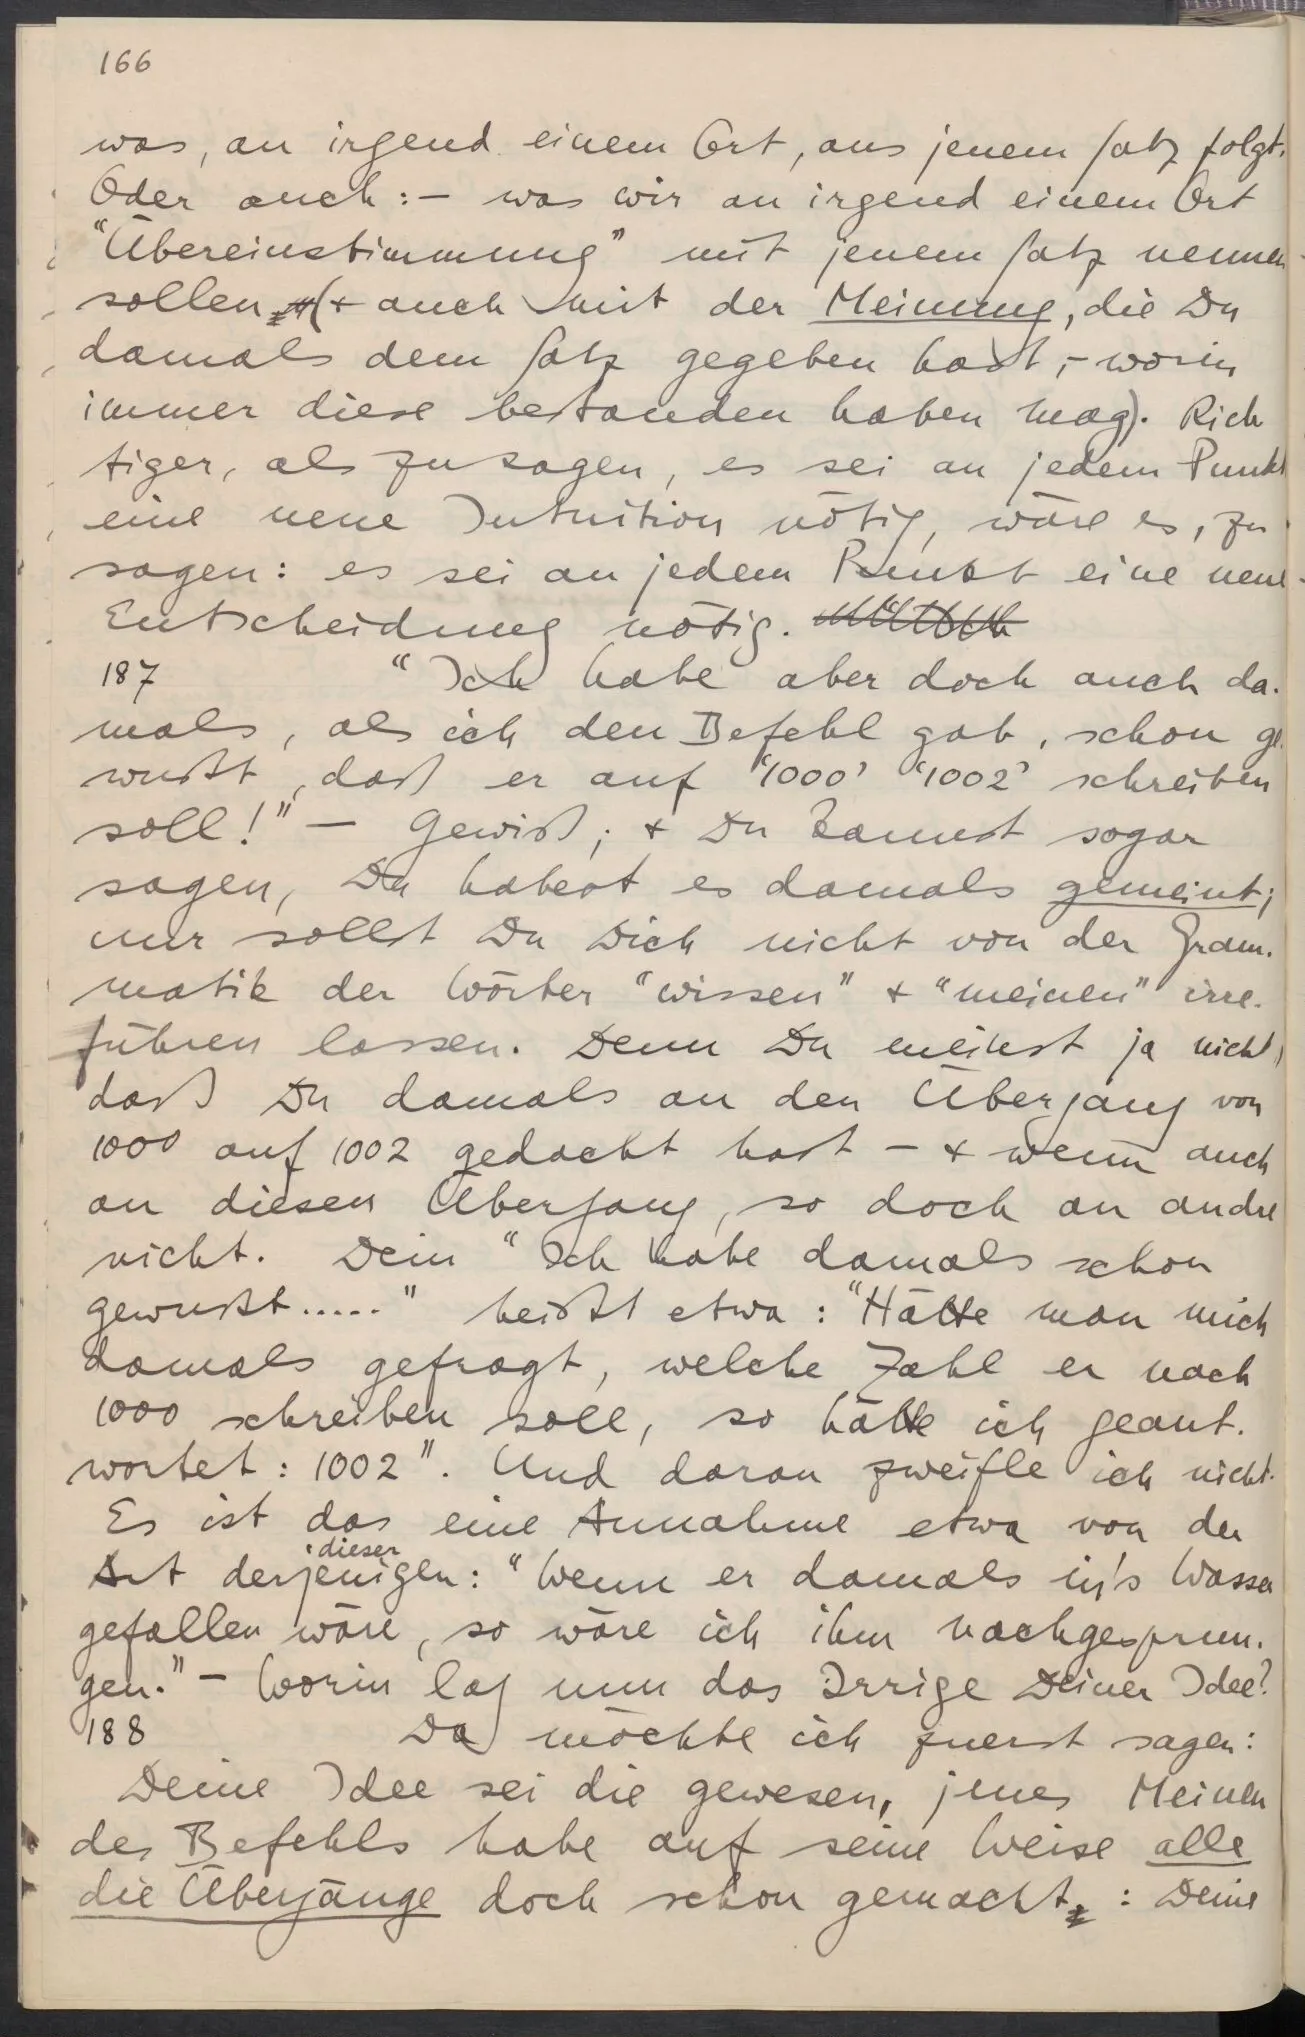 166
was, an irgend einem Ort, aus jenem Satz folgt.
Oder auch: – was wir an irgend einem Ort
"Übereinstimmung" mit jenem Satz nennen
sollen (& auch mit der Meinung, die Du
damals dem Satz gegeben hast, – worin
immer diese bestanden haben mag). Rich
tiger, als zu sagen, es sei an jedem Punkt
eine neue Intuition nötig, wäre es, zu
sagen: es sei an jedem Punkt eine neue
Entscheidung nötig.
187 "Ich habe aber doch auch da-
mals, als ich den Befehl gab, schon ge
wußt, daß er auf '1000' '1002' schreiben
soll!" – Gewiß; & Du kannst sogar
sagen, Du habest es damals gemeint;
nur sollst Du Dich nicht von der Gram-
matik der Wörter "wissen" & "meinen" irre-
führen lassen. Denn Du meinst ja nicht,
daß Du damals an den Übergang von
1000 auf 1002 gedacht hast – & wenn auch
an diesen Übergang, so doch an andre
nicht. Dein "Ich habe damals schon
gewußt....." heißt etwa: "Hätte man mich
damals gefragt, welche Zahl er nach
1000 schreiben soll, so hätte ich geant-
wortet: 1002". Und daran zweifle ich nicht.
Es ist das eine Annahme etwa von der
dieser
Art derjenigen: "Wenn er damals in's Wasser
gefallen wäre, so wäre ich ihm nachgesprun-
gen." – Worin lag nun das Irrige Deiner Idee?
188 Da möchte ich zuerst sagen:
Deine Idee sei die gewesen, jenes Meinen
des Befehls habe auf seine Weise alle
die Übergänge doch schon gemacht: Deine